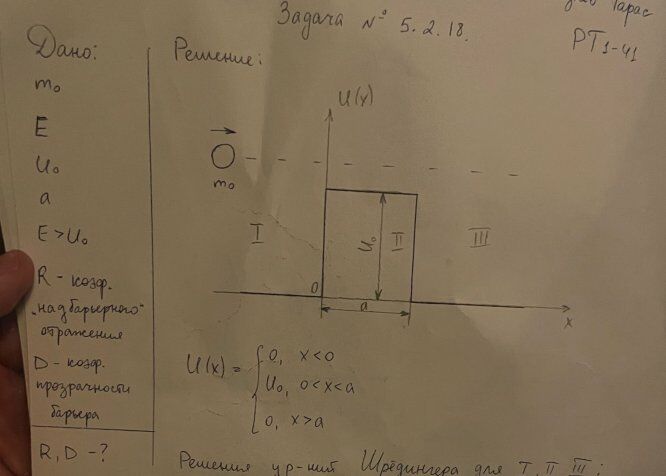 Задача № 5.2.18.
Тарас
РТ1-41
Дано:
m₀
E
U₀
a
E>U₀
R - коэф.
„надбарьерного"
отражения
D - коэф.
прозрачности
барьера
R, D -?
Решение:
U(x)
m₀
I
U₀
II
III
0
a
x
U(x) = { 0, x<0
U₀, 0<x<a
0, x>a
Решения ур-ний Шрёдингера для I, II III: